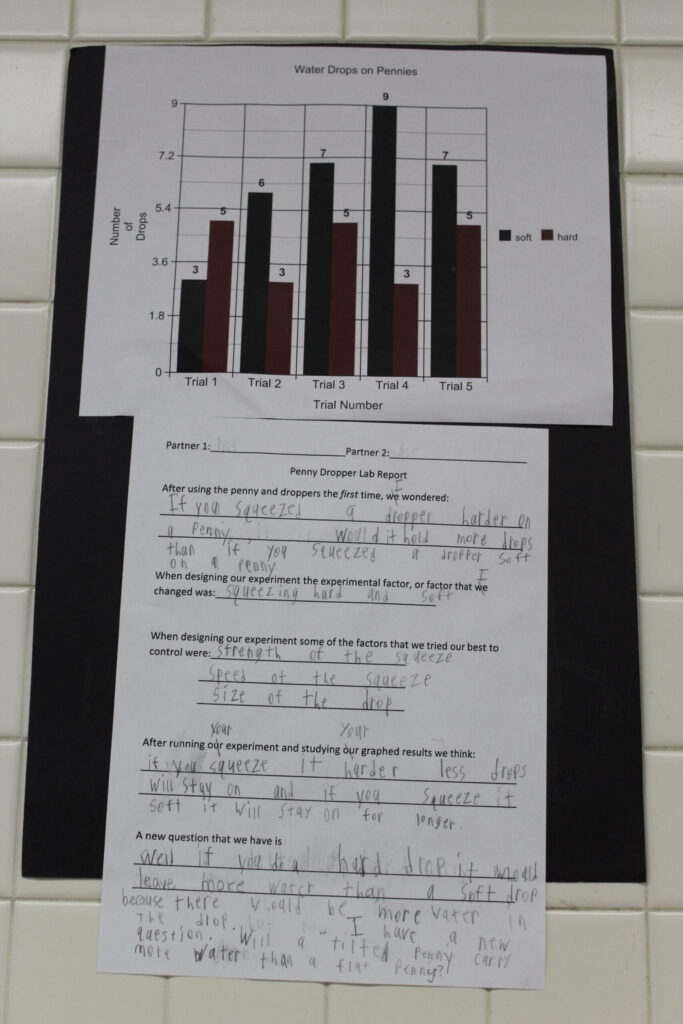 Water Drops on Pennies
Number of Drops
9
7.2
5.4
3.6
1.8
0
3 5 6 3 7 5 9 3 7 5
soft hard
Trial 1 Trial 2 Trial 3 Trial 4 Trial 5
Trial Number
Partner 1: Partner 2:
Penny Dropper Lab Report
I
After using the penny and droppers the first time, we wondered:
If you squeezed a dropper harder on
a penny would it hold more drops
than if you squeezed a dropper soft
on a penny
I
When designing our experiment the experimental factor, or factor that we
changed was: squeezing hard and soft
When designing our experiment some of the factors that we tried our best to
control were: strength of the squeeze
speed of the squeeze
size of the drop
your your
After running our experiment and studying our graphed results we think:
if you squeeze it harder less drops
will stay on and if you squeeze it
soft it will stay on for longer.
A new question that we have is
well if you do a hard drop it would
leave more water than a soft drop
because there would be more water in
the drop. I have a new
question. Will a tilted penny carry
more water than a flat penny?